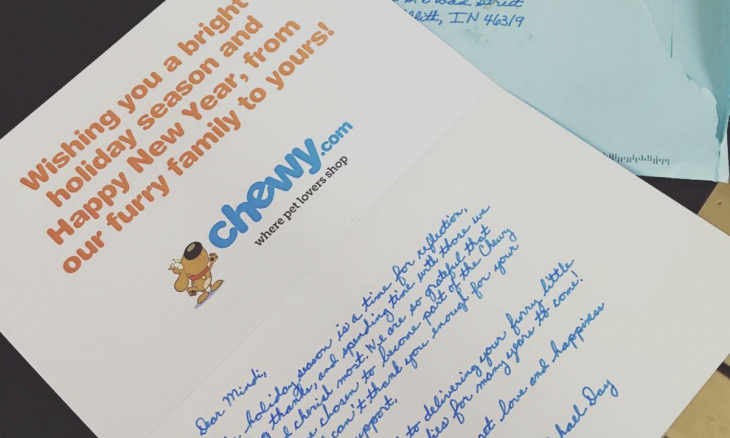 Wishing you a bright
holiday season and
Happy New Year, from
our furry family to yours!
chewy.com
where pet lovers shop
Street
IN 46319
Dear Mindi,
holiday season is a time for reflection,
thanks, and spending time with those we
cherish most. We are so grateful that
chosen to become part of the Chewy
can't thank you enough for your
support.
to delivering your furry little
for many years to come!
love and happiness
Day